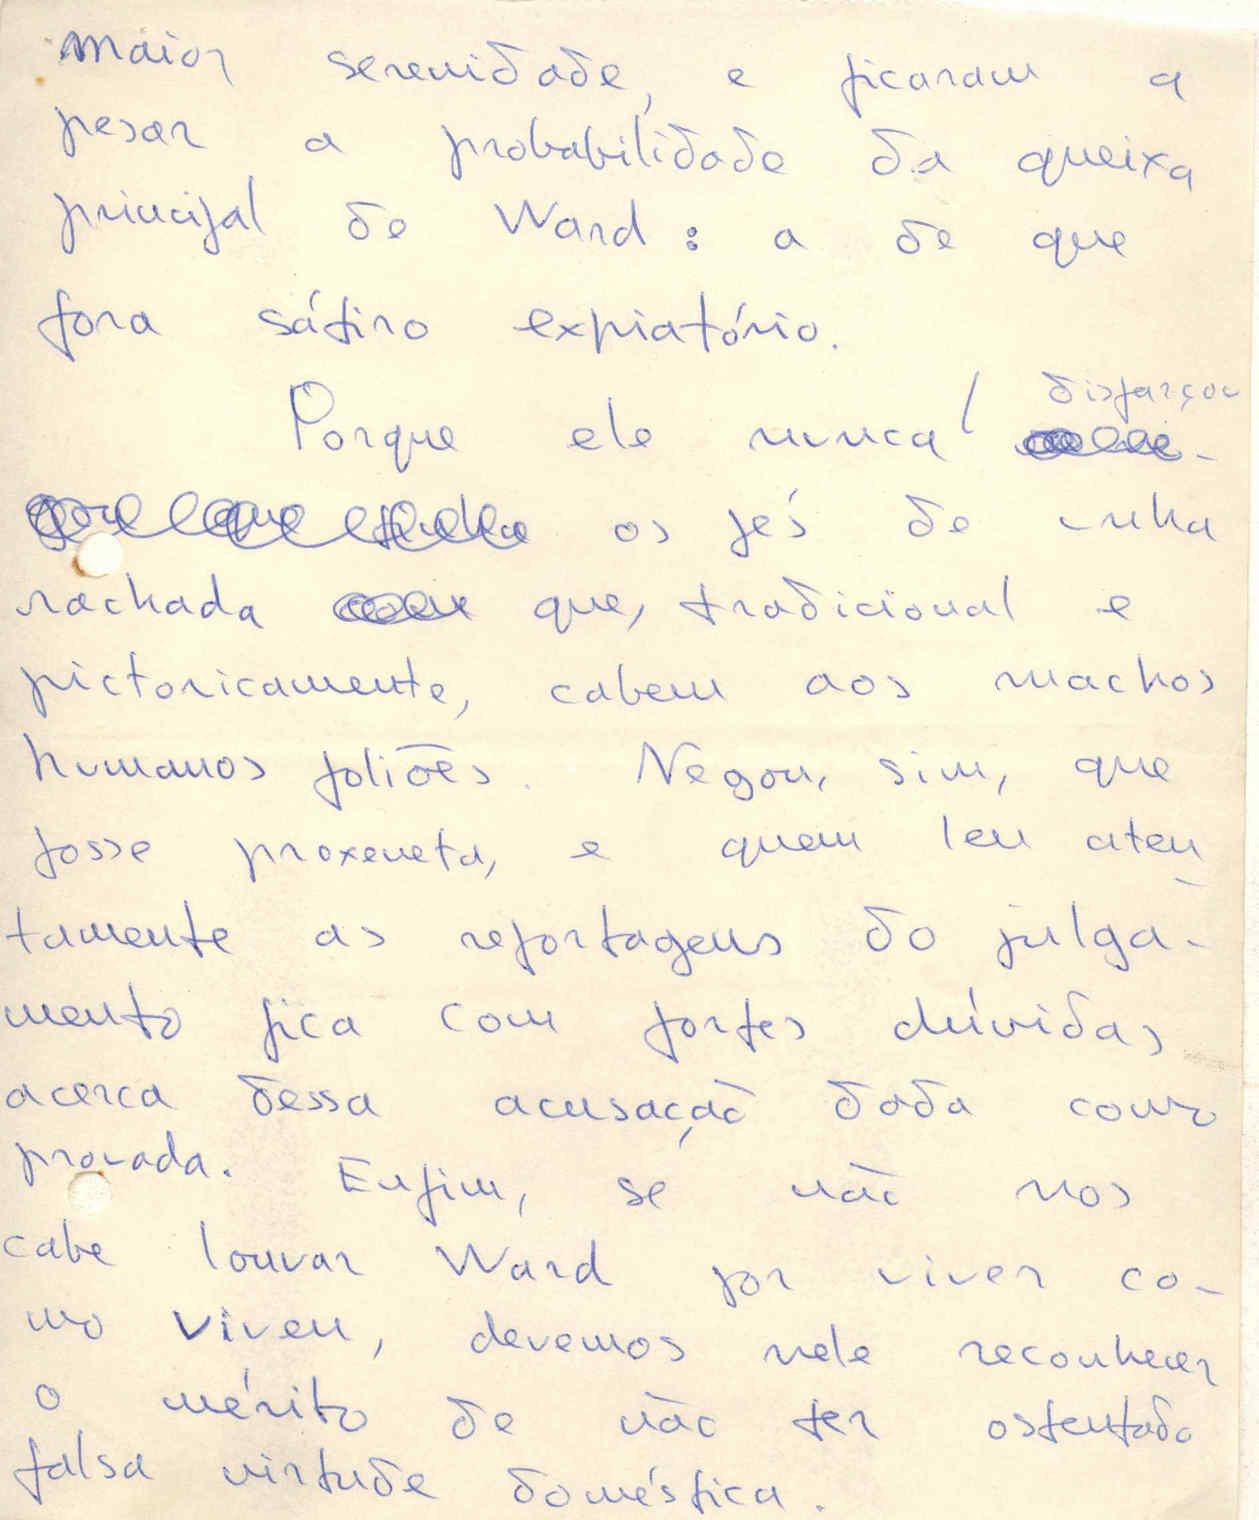 maior serenidade, e ficaram a
pesar a probabilidade da queixa
principal de Ward: a de que
fora sátiro expiatório.
Porque ele nunca disfarçou
os pés de unha
rachada que, tradicional e
pictoricamente, cabem aos machos
humanos foliões. Negou, sim, que
fosse proxeneta, e quem leu aten-
tamente as reportagens do julga-
mento fica com fortes dúvidas
acerca dessa acusação dada como
provada. Enfim, se não nos
cabe louvar Ward por viver co-
mo viveu, devemos nele reconhecer
o mérito de não ter ostentado
falsa virtude doméstica.